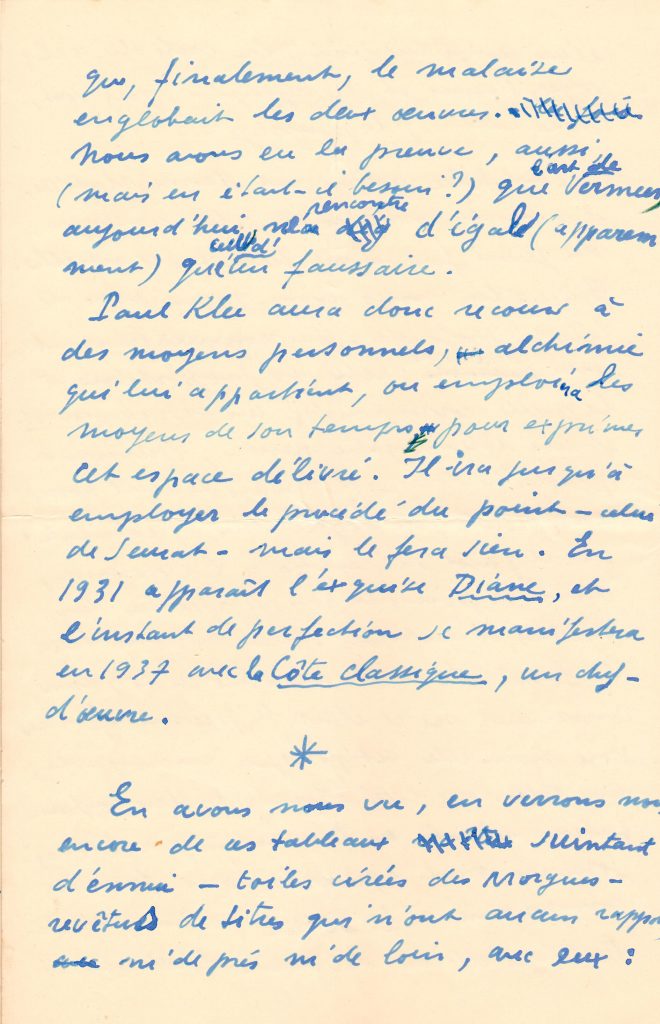 que, finalement, le malaise
englobait les deux œuvres.
Nous avons eu la preuve, aussi
l'art de
(mais en était-il besoin?) que Vermeer
rencontre
aujourd'hui ne d'égal (apparem
celui d'
ment) qu'un faussaire.
Paul Klee aura donc recours à
des moyens personnels, alchimie
qui lui appartient, ou emploiera les
moyens de son temps pour exprimer
cet espace délivré. Il ira jusqu'à
employer le procédé du point – celui
de Seurat – mais le fera sien. En
1931 apparaît l'exquise Diane, et
l'instant de perfection se manifestera
en 1937 avec la Côte classique, un chef-
d'œuvre.
*
En avons nous vu, en verrons nous
encore de ces tableaux suintant
d'ennui – toiles cirées des Morgues –
revêtus de titres qui n'ont aucun rappor
ni de près ni de loin, avec eux :